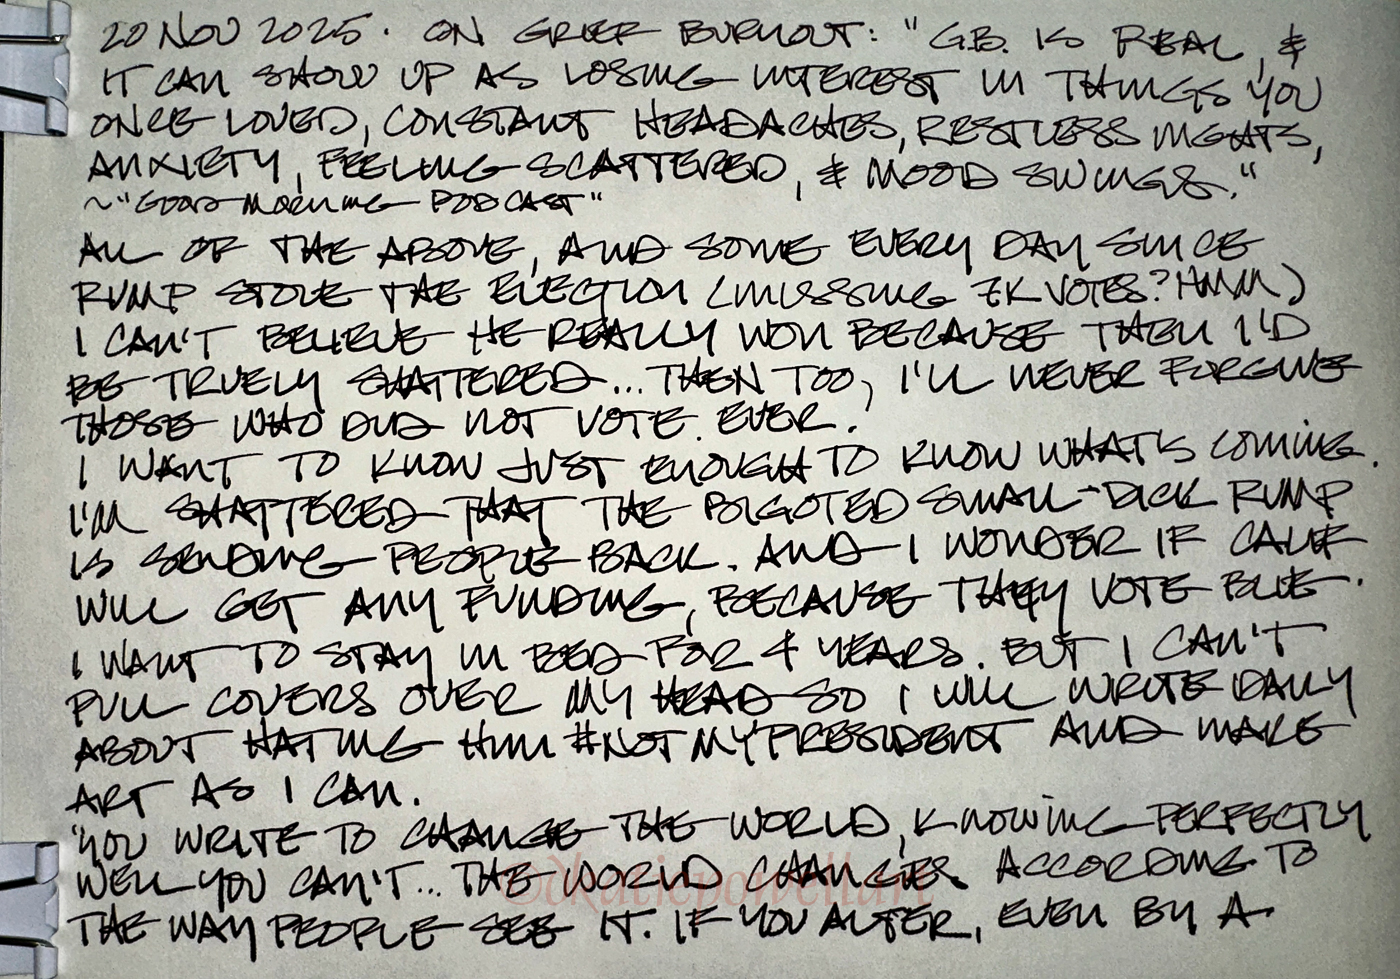 20 NOV 2025. ON GRIEF BURNOUT: "G.B. IS REAL, &
IT CAN SHOW UP AS LOSING INTEREST IN THINGS YOU
ONCE LOVED, CONSTANT HEADACHES, RESTLESS NIGHTS,
ANXIETY, FEELING SCATTERED, & MOOD SWINGS."
~"GOOD MORNING PODCAST"
ALL OF THE ABOVE, AND SOME EVERY DAY SINCE
RUMP STOLE THE ELECTION (MISSING 7K VOTES? HMM)
I CAN'T BELIEVE HE REALLY WON BECAUSE THEN I'D
BE TRUELY SHATTERED... THEN TOO, I'LL NEVER FORGIVE
THOSE WHO DID NOT VOTE. EVER.
I WANT TO KNOW JUST ENOUGH TO KNOW WHAT'S COMING.
I'M SHATTERED THAT THE BIGOTED SMALL-DICK RUMP
IS SENDING PEOPLE BACK. AND I WONDER IF CALIF
WILL GET ANY FUNDING, BECAUSE THEY VOTE BLUE.
I WANT TO STAY IN BED FOR 4 YEARS. BUT I CAN'T
PULL COVERS OVER MY HEAD SO I WILL WRITE DAILY
ABOUT HATING HIM #NOTMYPRESIDENT AND MAKE
ART AS I CAN.
"YOU WRITE TO CHANGE THE WORLD, KNOWING PERFECTLY
WELL YOU CAN'T... THE WORLD CHANGES ACCORDING TO
©dkatiepowellart
THE WAY PEOPLE SEE IT. IF YOU ALTER, EVEN BY A